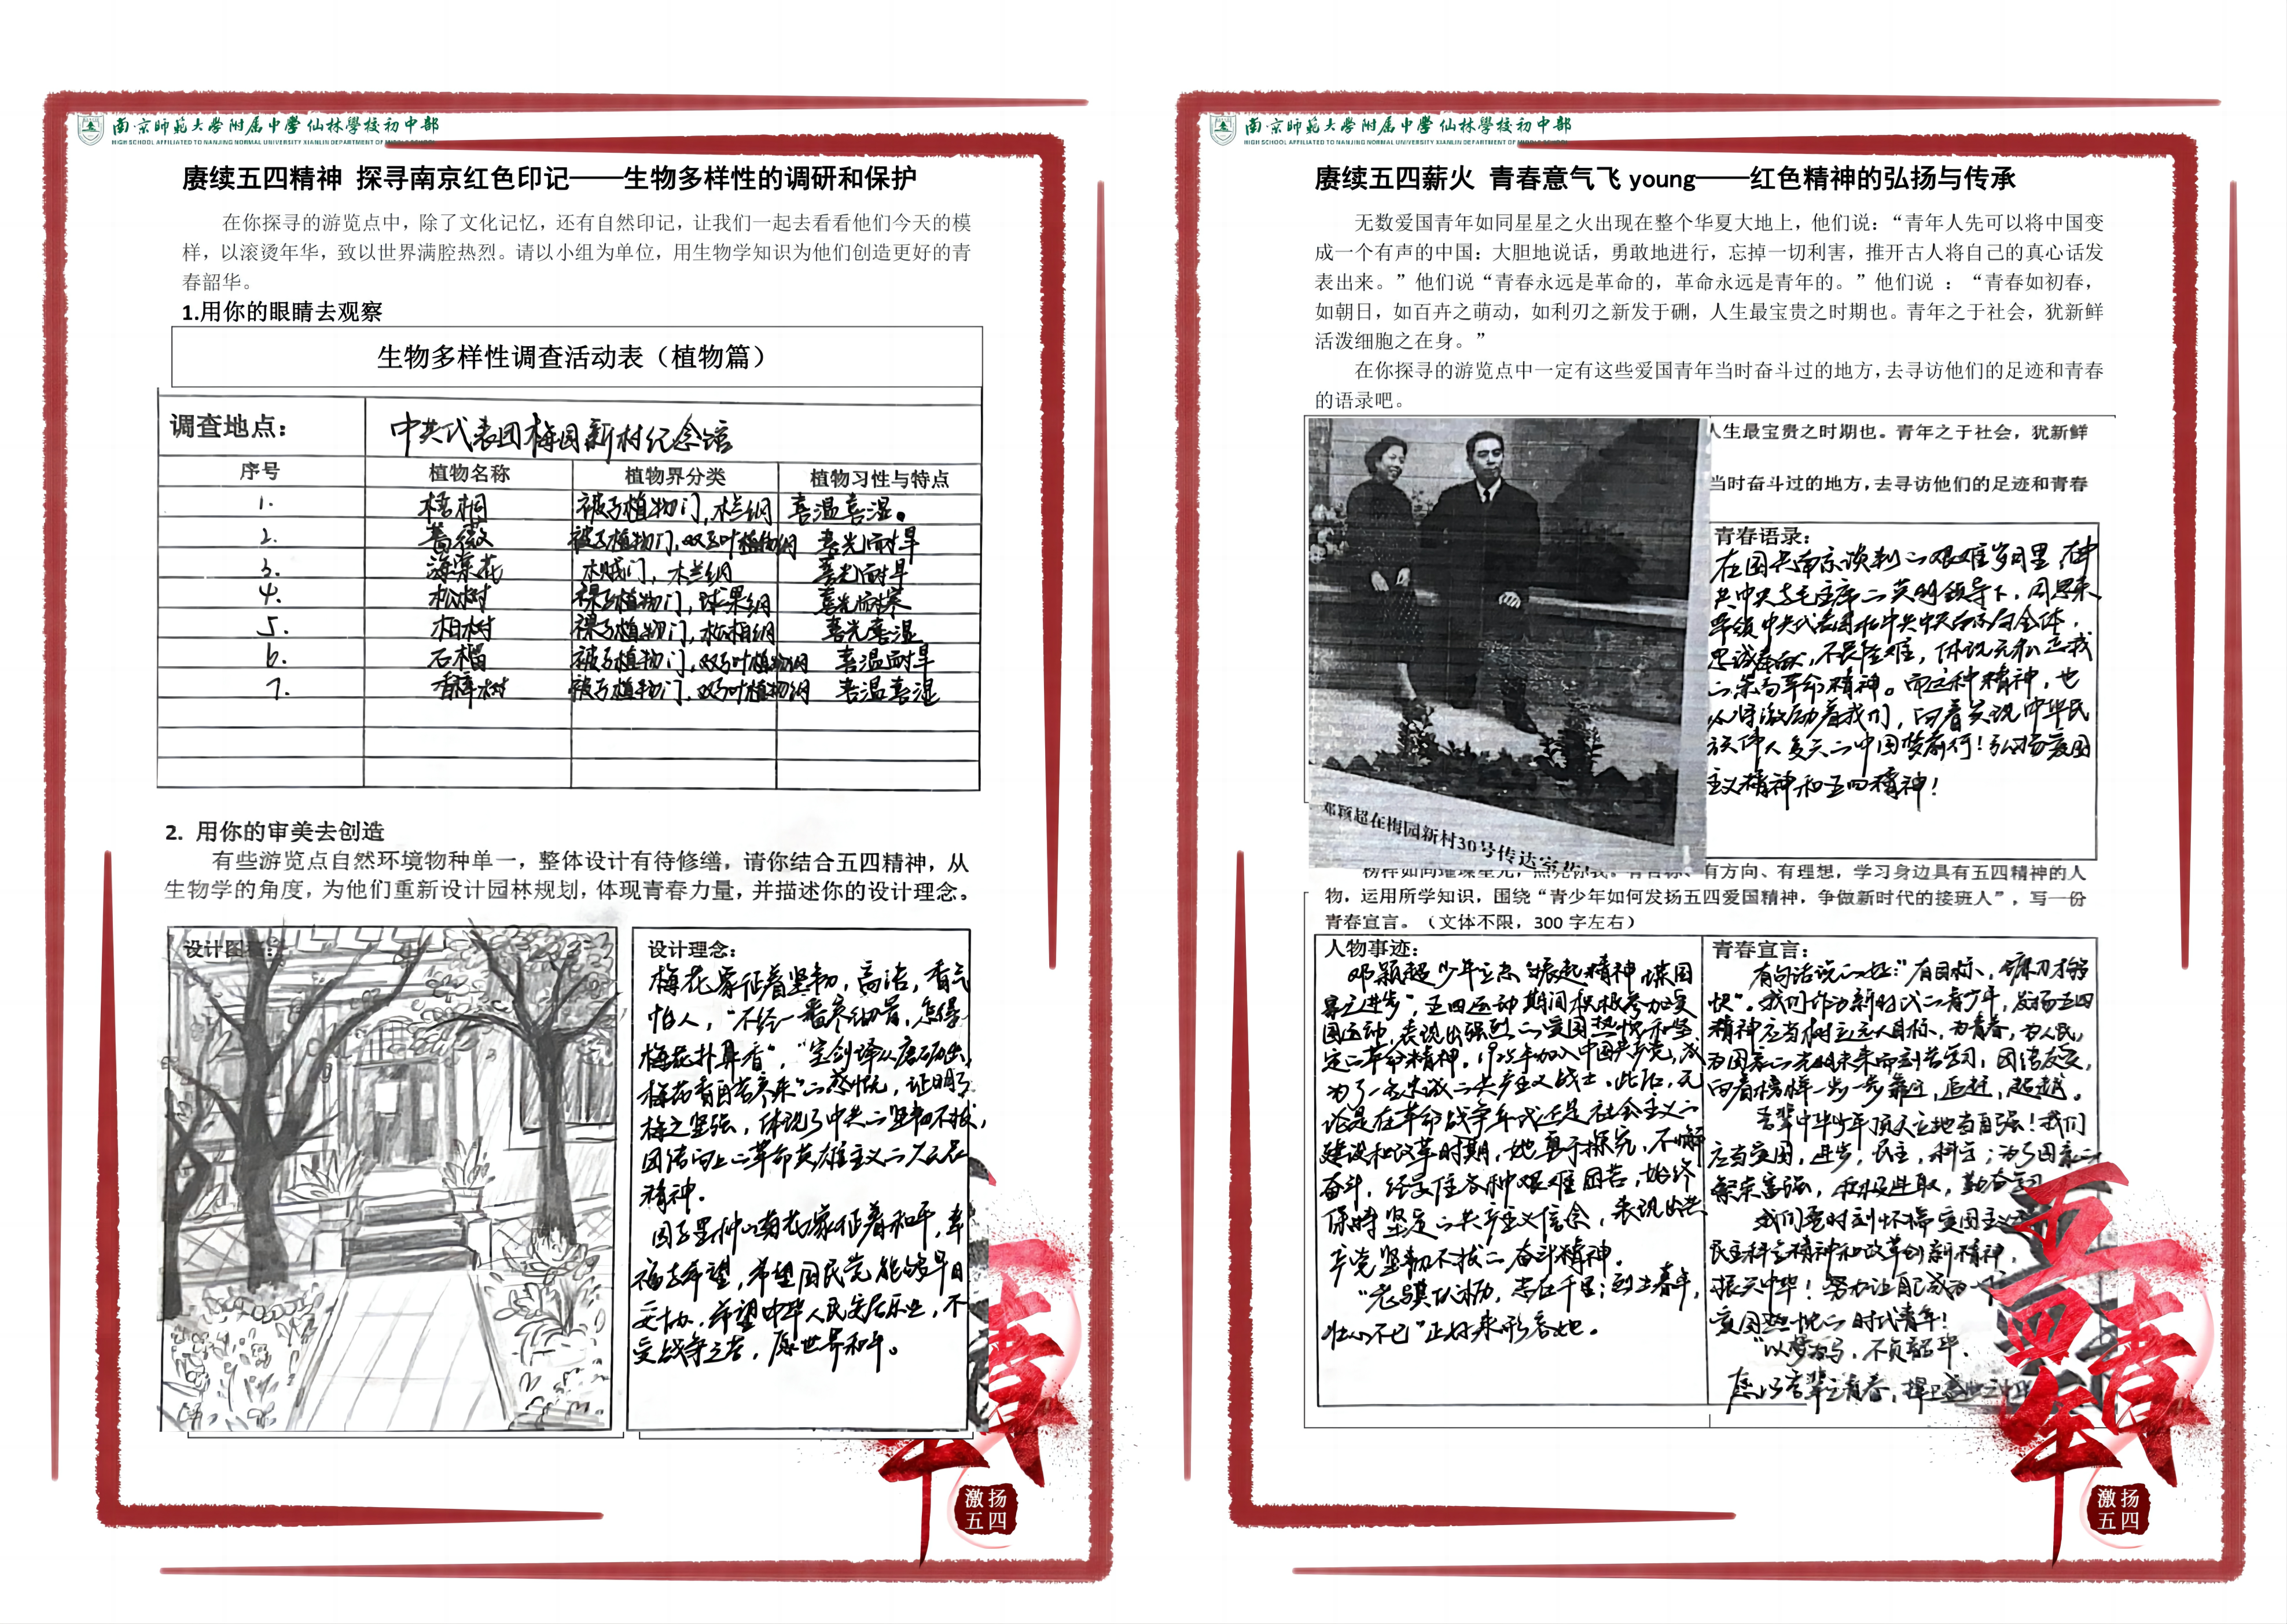 南京师范大学附属中学仙林学校初中部
HIGH SCHOOL AFFILIATED TO NANJING NORMAL UNIVERSITY XIANLIN DEPARTMENT OF
赓续五四精神 探寻南京红色印记——生物多样性的调研和保护
在你探寻的游览点中，除了文化记忆，还有自然印记，让我们一起去看看他们今天的模
样，以滚烫年华，致以世界满腔热烈。请以小组为单位，用生物学知识为他们创造更好的青
春韶华。
1.用你的眼睛去观察
生物多样性调查活动表（植物篇）
调查地点： 中共代表团梅园新村纪念馆
序号 植物名称 植物界分类 植物习性与特点
1. 梧桐 被子植物门,木兰纲 喜温喜湿。
2. 蔷薇 被子植物门,双子叶植物纲 喜光耐旱
3. 海棠花 木贼门,木兰纲 喜光耐旱
4. 松树 裸子植物门,球果纲 喜光耐寒
5. 柏树 裸子植物门,松柏纲 喜光喜湿
6. 石榴 被子植物门,双子叶植物纲 喜温耐旱
7. 香樟树 被子植物门,双子叶植物纲 喜温喜湿
2. 用你的审美去创造
有些游览点自然环境物种单一，整体设计有待修缮，请你结合五四精神，从
生物学的角度，为他们重新设计园林规划，体现青春力量，并描述你的设计理念。
设计图
设计理念：
梅花象征着坚韧，高洁，香气
怡人，“不经一番寒彻骨，怎得
梅花扑鼻香”，“宝剑锋从磨砺出，
梅花香自苦寒来”的感慨，证明了
梅之坚强，体现了中共的坚韧不拔，
团结向上的革命英雄主义的
精神。
园子里种的菊花象征着和平，幸
福与希望，希望国民党能够早日
妥协，希望中华人民安居乐业，不
受战争之苦，愿世界和平。
激扬
五四
南京师范大学附属中学仙林学校初中部
HIGH SCHOOL AFFILIATED TO NANJING NORMAL UNIVERSITY XIANLIN DEPARTMENT OF
赓续五四薪火 青春意气飞 young——红色精神的弘扬与传承
无数爱国青年如同星星之火出现在整个华夏大地上，他们说：“青年人先可以将中国变
成一个有声的中国：大胆地说话，勇敢地进行，忘掉一切利害，推开古人将自己的真心话发
表出来。”他们说“青春永远是革命的，革命永远是青年的。”他们说 ：“青春如初春，
如朝日，如百卉之萌动，如利刃之新发于硎，人生最宝贵之时期也。青年之于社会，犹新鲜
活泼细胞之在身。”
在你探寻的游览点中一定有这些爱国青年当时奋斗过的地方，去寻访他们的足迹和青春
的语录吧。
人生最宝贵之时期也。青年之于社会，犹新鲜
当时奋斗过的地方，去寻访他们的足迹和青春
邓颖超在梅园新村30号传达室
青春语录：
在国共南京谈判的艰难岁月里，在中
共中央与毛主席的英明领导下，周恩来
率领中共代表团和中共中央南京局全体，
忠诚奉献，不畏艰难，体现无私忘我
的崇高革命精神。而这种精神，也
必将激励着我们，向着实现中华民
族伟大复兴的中国梦前行！弘扬爱国
主义精神和五四精神！
榜样如同璀璨星光，点亮你我。有目标、有方向、有理想，学习身边具有五四精神的人
物，运用所学知识，围绕“青少年如何发扬五四爱国精神，争做新时代的接班人”，写一份
青春宣言。（文体不限，300 字左右）
人物事迹：
邓颖超少年立志“振起精神，谋国
家之进步”，五四运动期间积极参加爱
国运动，表现出强烈的爱国热情和坚
定的革命精神，1925年加入中国共产党，成
为了一名忠诚的共产主义战士。此后，无
论是在革命战争年代还是社会主义的
建设和改革时期，她勇于探究，不懈
奋斗，经受住各种艰难困苦，始终
保持坚定的共产主义信念，表现出共
产党坚韧不拔的奋斗精神。
“老骥伏枥，志在千里；烈士暮年，
壮心不已”正好来形容她。
青春宣言：
有句话说的好：“有目标，磨刀才能
快”。我们作为新时代的青少年，发扬五四
精神应当树立远大目标，为青春，为人民，
为国家的光明未来而刻苦学习，团结友爱，
向着榜样一步一步靠近，追赶，超越。
吾辈中华少年顶天立地当自强！我们
应当爱国，进步，民主，科学；为了国家的
繁荣富强，积极进取，勤奋学习
我们要时刻怀揣爱国主义
民主科学精神和改革创新精神，
振兴中华！努力让自己成为一个
爱国热忱的时代青年！
“以梦为马，不负韶华。
愿以吾辈之青春，捍卫盛世之中华
五四青年
激扬
五四